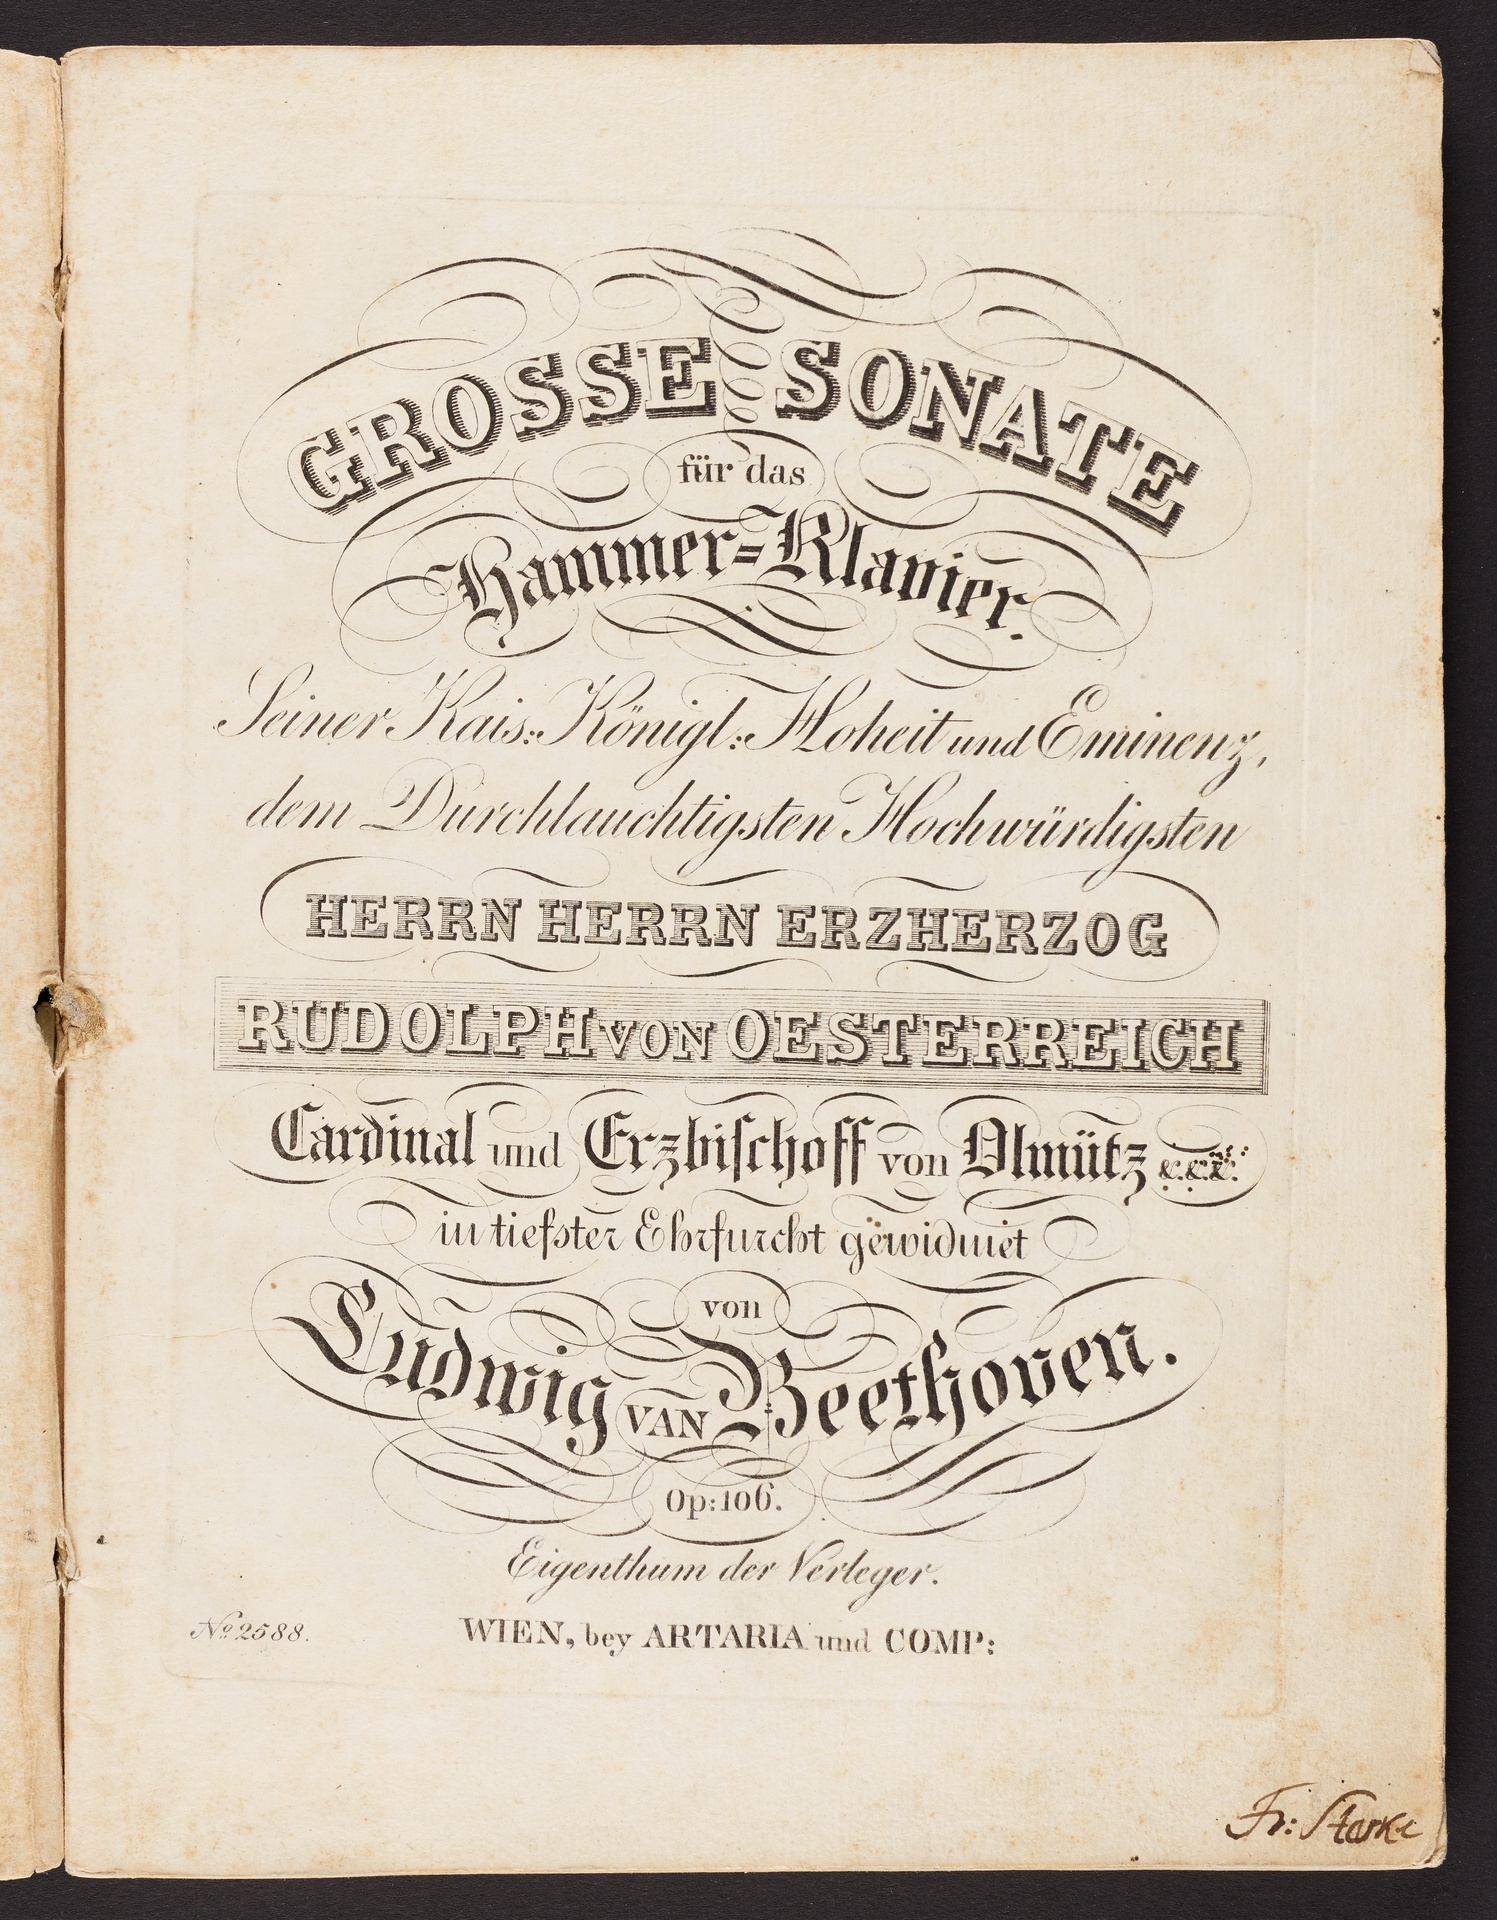 GROSSE SONATE
für das
Hammer=Klavier.
Seiner Kais: Königl: Hoheit und Eminenz,
dem Durchlauchtigsten Hochwürdigsten
HERRN HERRN ERZHERZOG
RUDOLPH VON OESTERREICH
Cardinal und Erzbischoff von Olmütz &.&.&.
in tiefster Ehrfurcht gewidmet
von
Ludwig VAN Beethoven.
Op: 106.
Eigenthum der Verleger.
No 2588.
WIEN, bey ARTARIA und COMP:
Fr: Starke